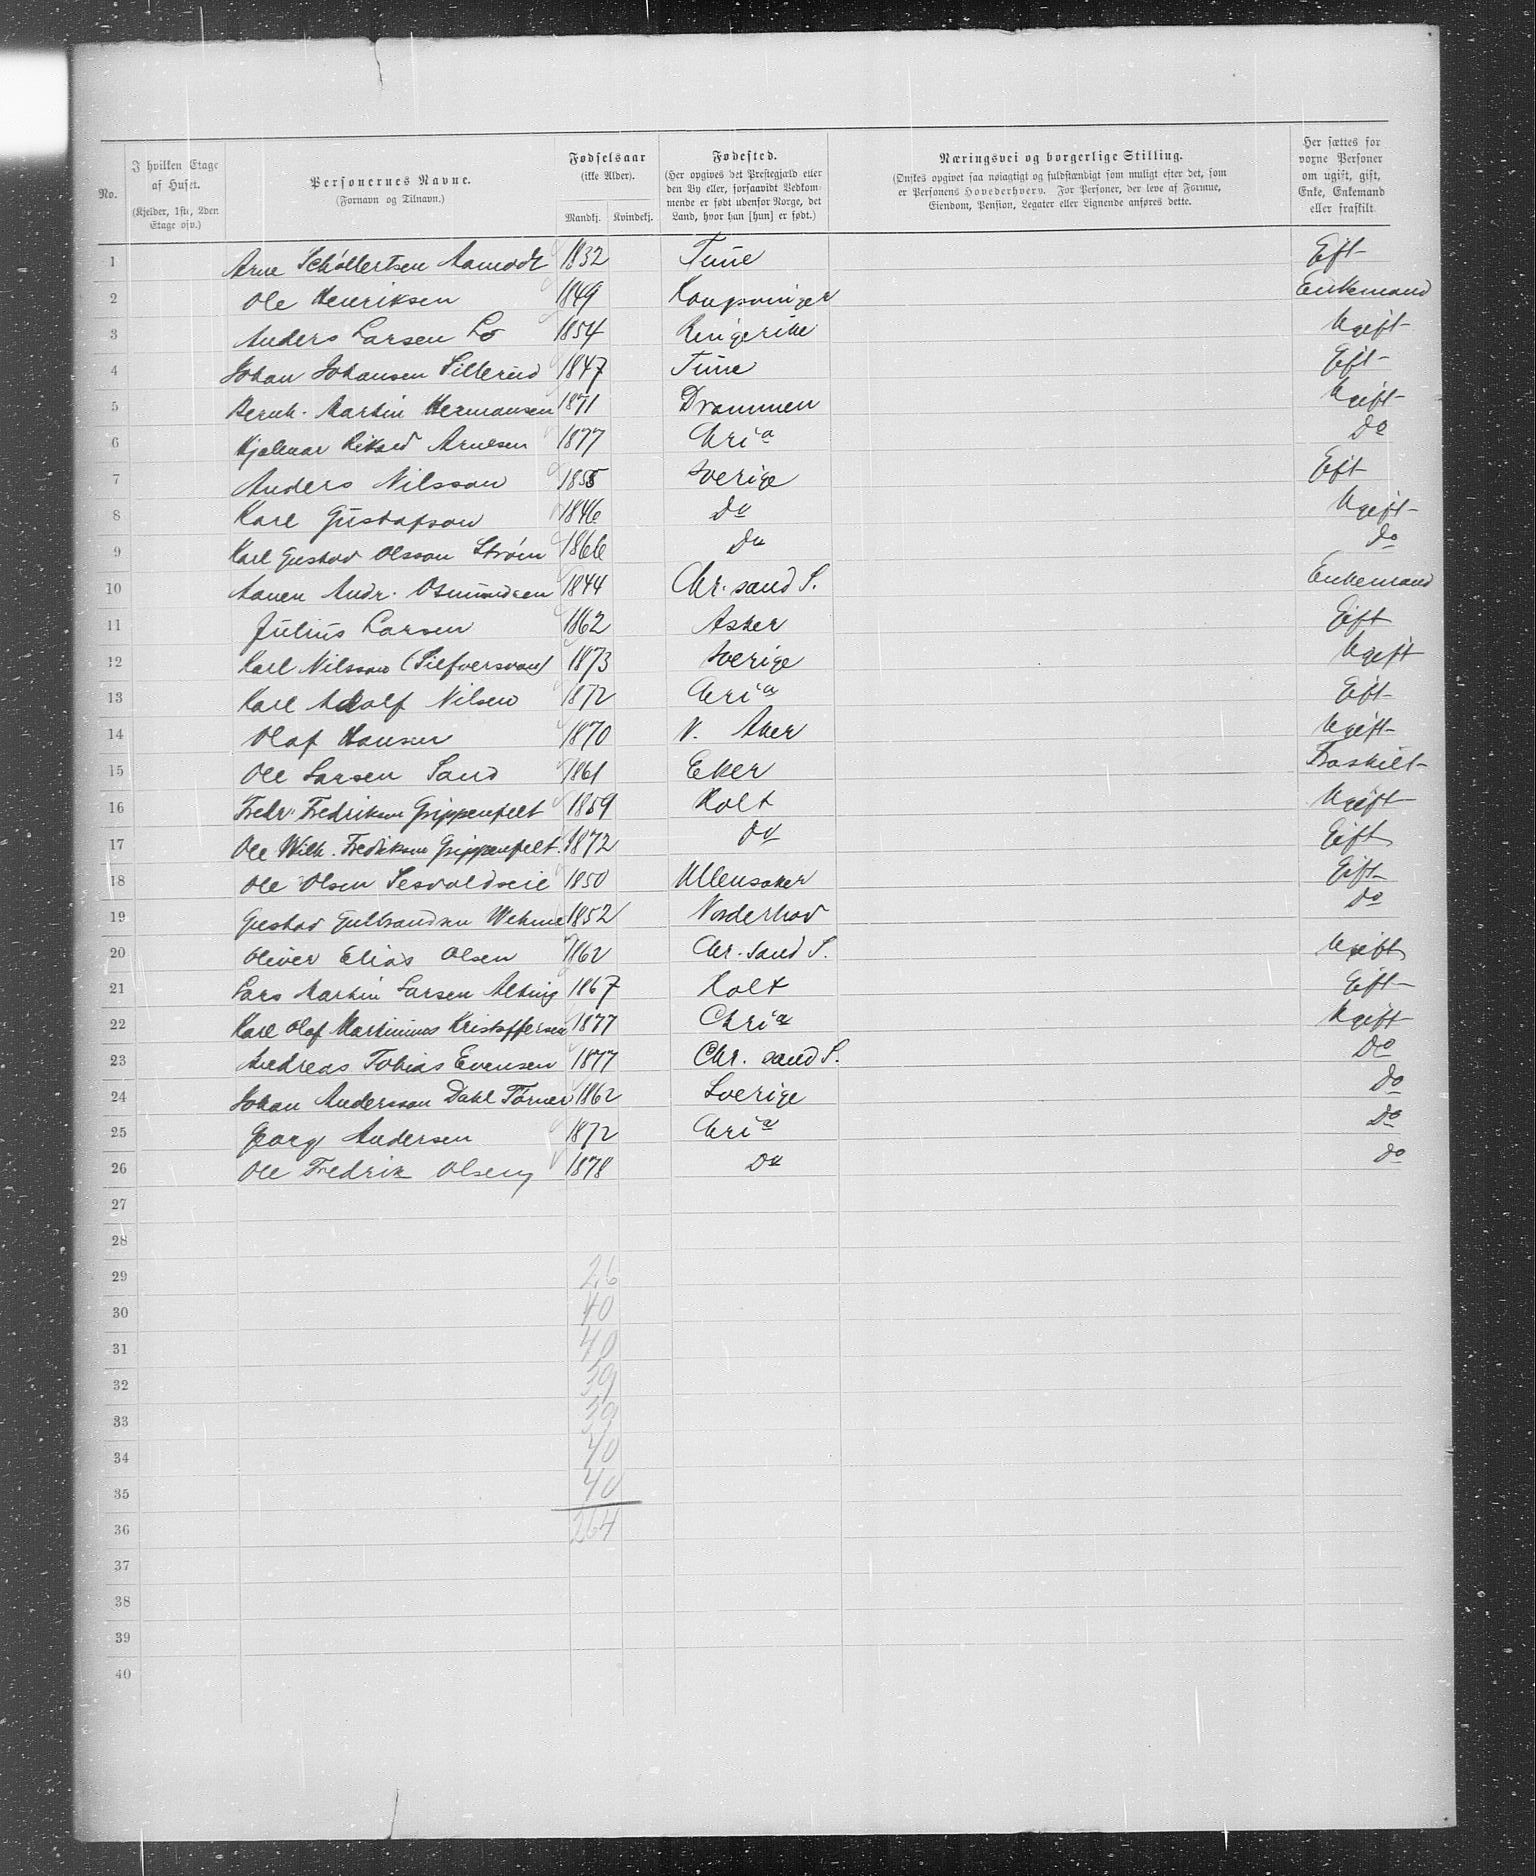 No.
I hvilken Etage af Huset.
(Kjelder, 1ste, 2den Etage osv.)
Personernes Navne.
(Fornavn og Tilnavn.)
Fødselsaar
(ikke Alder).
Mandkj. Kvindekj.
Fødested.
(Her opgives det Prestegjæld eller
den By eller, forsaavidt Vedkom-
mende er født udenfor Norge, det
Land, hvor han [hun] er født.)
Næringsvei og borgerlige Stilling.
(Ønskes opgivet saa nøiagtigt og fuldstændigt som muligt efter det, som
er Personens Hovederhverv. For Personer, der leve af Formue,
Eiendom, Pension, Legater eller Lignende anføres dette.
Her sættes for
voxne Personer
om ugift, gift,
Enke, Enkemand
eller fraskilt
1 Arne Schöllertsen Aamodt 1832 Tune Gift
2 Ole Henriksen 1849 Kongsvinger Enkemand
3 Anders Larsen Lo 1854 Ringerike Ugift
4 Johan Johansen Sillerud 1847 Tune Gift
5 Bernh. Martin Hermansen 1871 Drammen Ugift
6 Hjalmar Rikard Arnesen 1877 Chria Do
7 Anders Nilsson 1855 Sverige Gift
8 Karl Gustafson 1846 Do Ugift
9 Karl Gustav Olsson Strøm 1866 Do Do
10 Aanen Andr. Osmundsen 1844 Chr. sand S. Enkemand
11 Julius Larsen 1862 Asker Gift
12 Karl Nilsson (Silfversvan) 1873 Sverige Ugift
13 Karl Adolf Nilsen 1872 Chria Gift
14 Olaf Hansen 1870 V. Aker Ugift
15 Ole Larsen Sand 1861 Eker Fraskilt
16 Fredr. Fredriksen Grippenfelt 1859 Holt Ugift
17 Ole Wilh. Fredriksen Grippenfelt 1872 Do Gift
18 Ole Olsen Tesvoldseie 1850 Ullensaker Gift
19 Gustav Gulbrandsen Wehme 1852 Norderhov Do
20 Oliver Elias Olsen 1862 Chr. Sand S. Ugift
21 Lars Martin Larsen 1867 Holt Gift
22 Karl Olaf Martinius Kristoffersen 1877 Chria Ugift
23 Andreas Tobias Evensen 1877 Chr. sand S. Do
24 Johan Andersson Dahl Törner 1862 Sverige Do
25 Georg Andersen 1872 Chria Do
26 Ole Fredrik Olsen 1878 Do Do
27
28
29 26
30 40
31 40
32 39
33 39
34 40
35 40
36 264
37
38
39
40